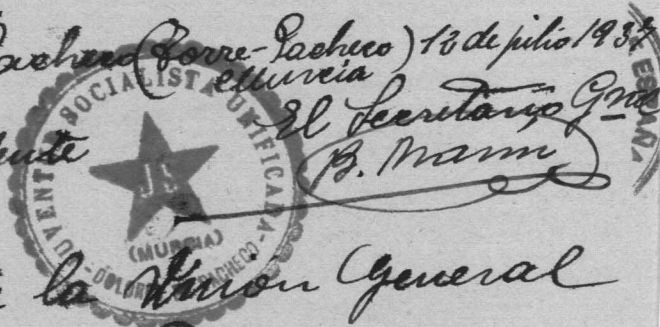 Pacheco (Torre-Pacheco) 12 de julio 1937
Murcia
El Secretario Gral
B. Marin
JUVENTUD SOCIALISTA UNIFICADA
JS
(MURCIA)
PACHECO
ESPAÑA
la Unión General